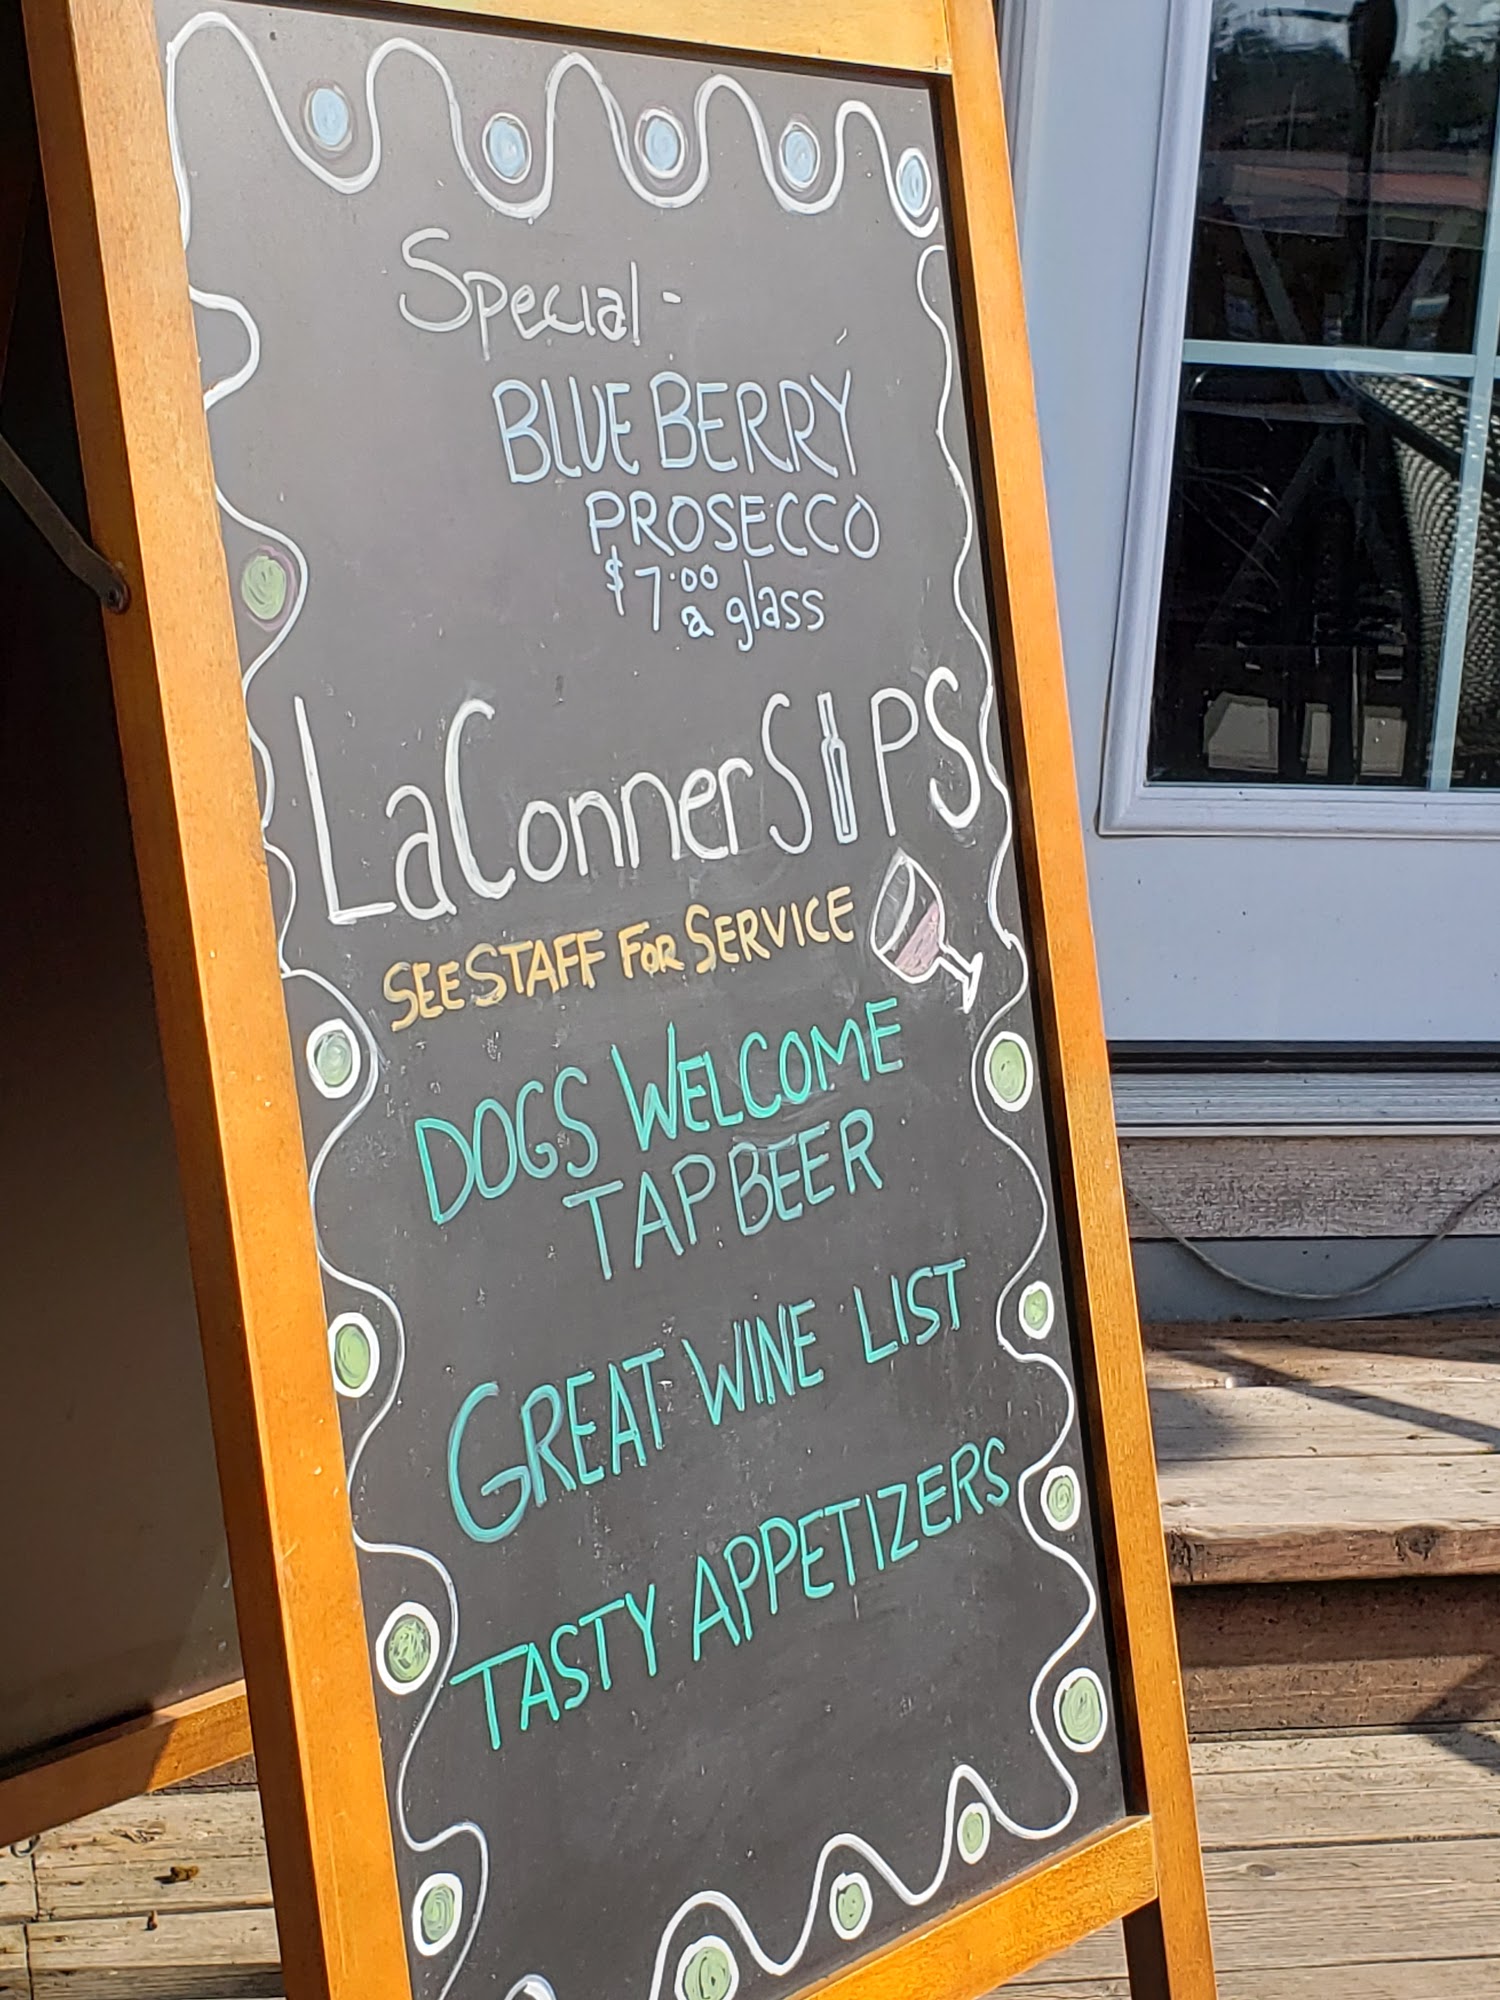 Special -
BLUEBERRY
PROSECCO
$7.00 a glass
LaConner SIPS
SEE STAFF FOR SERVICE
DOGS WELCOME
TAP BEER
GREAT WINE LIST
TASTY APPETIZERS